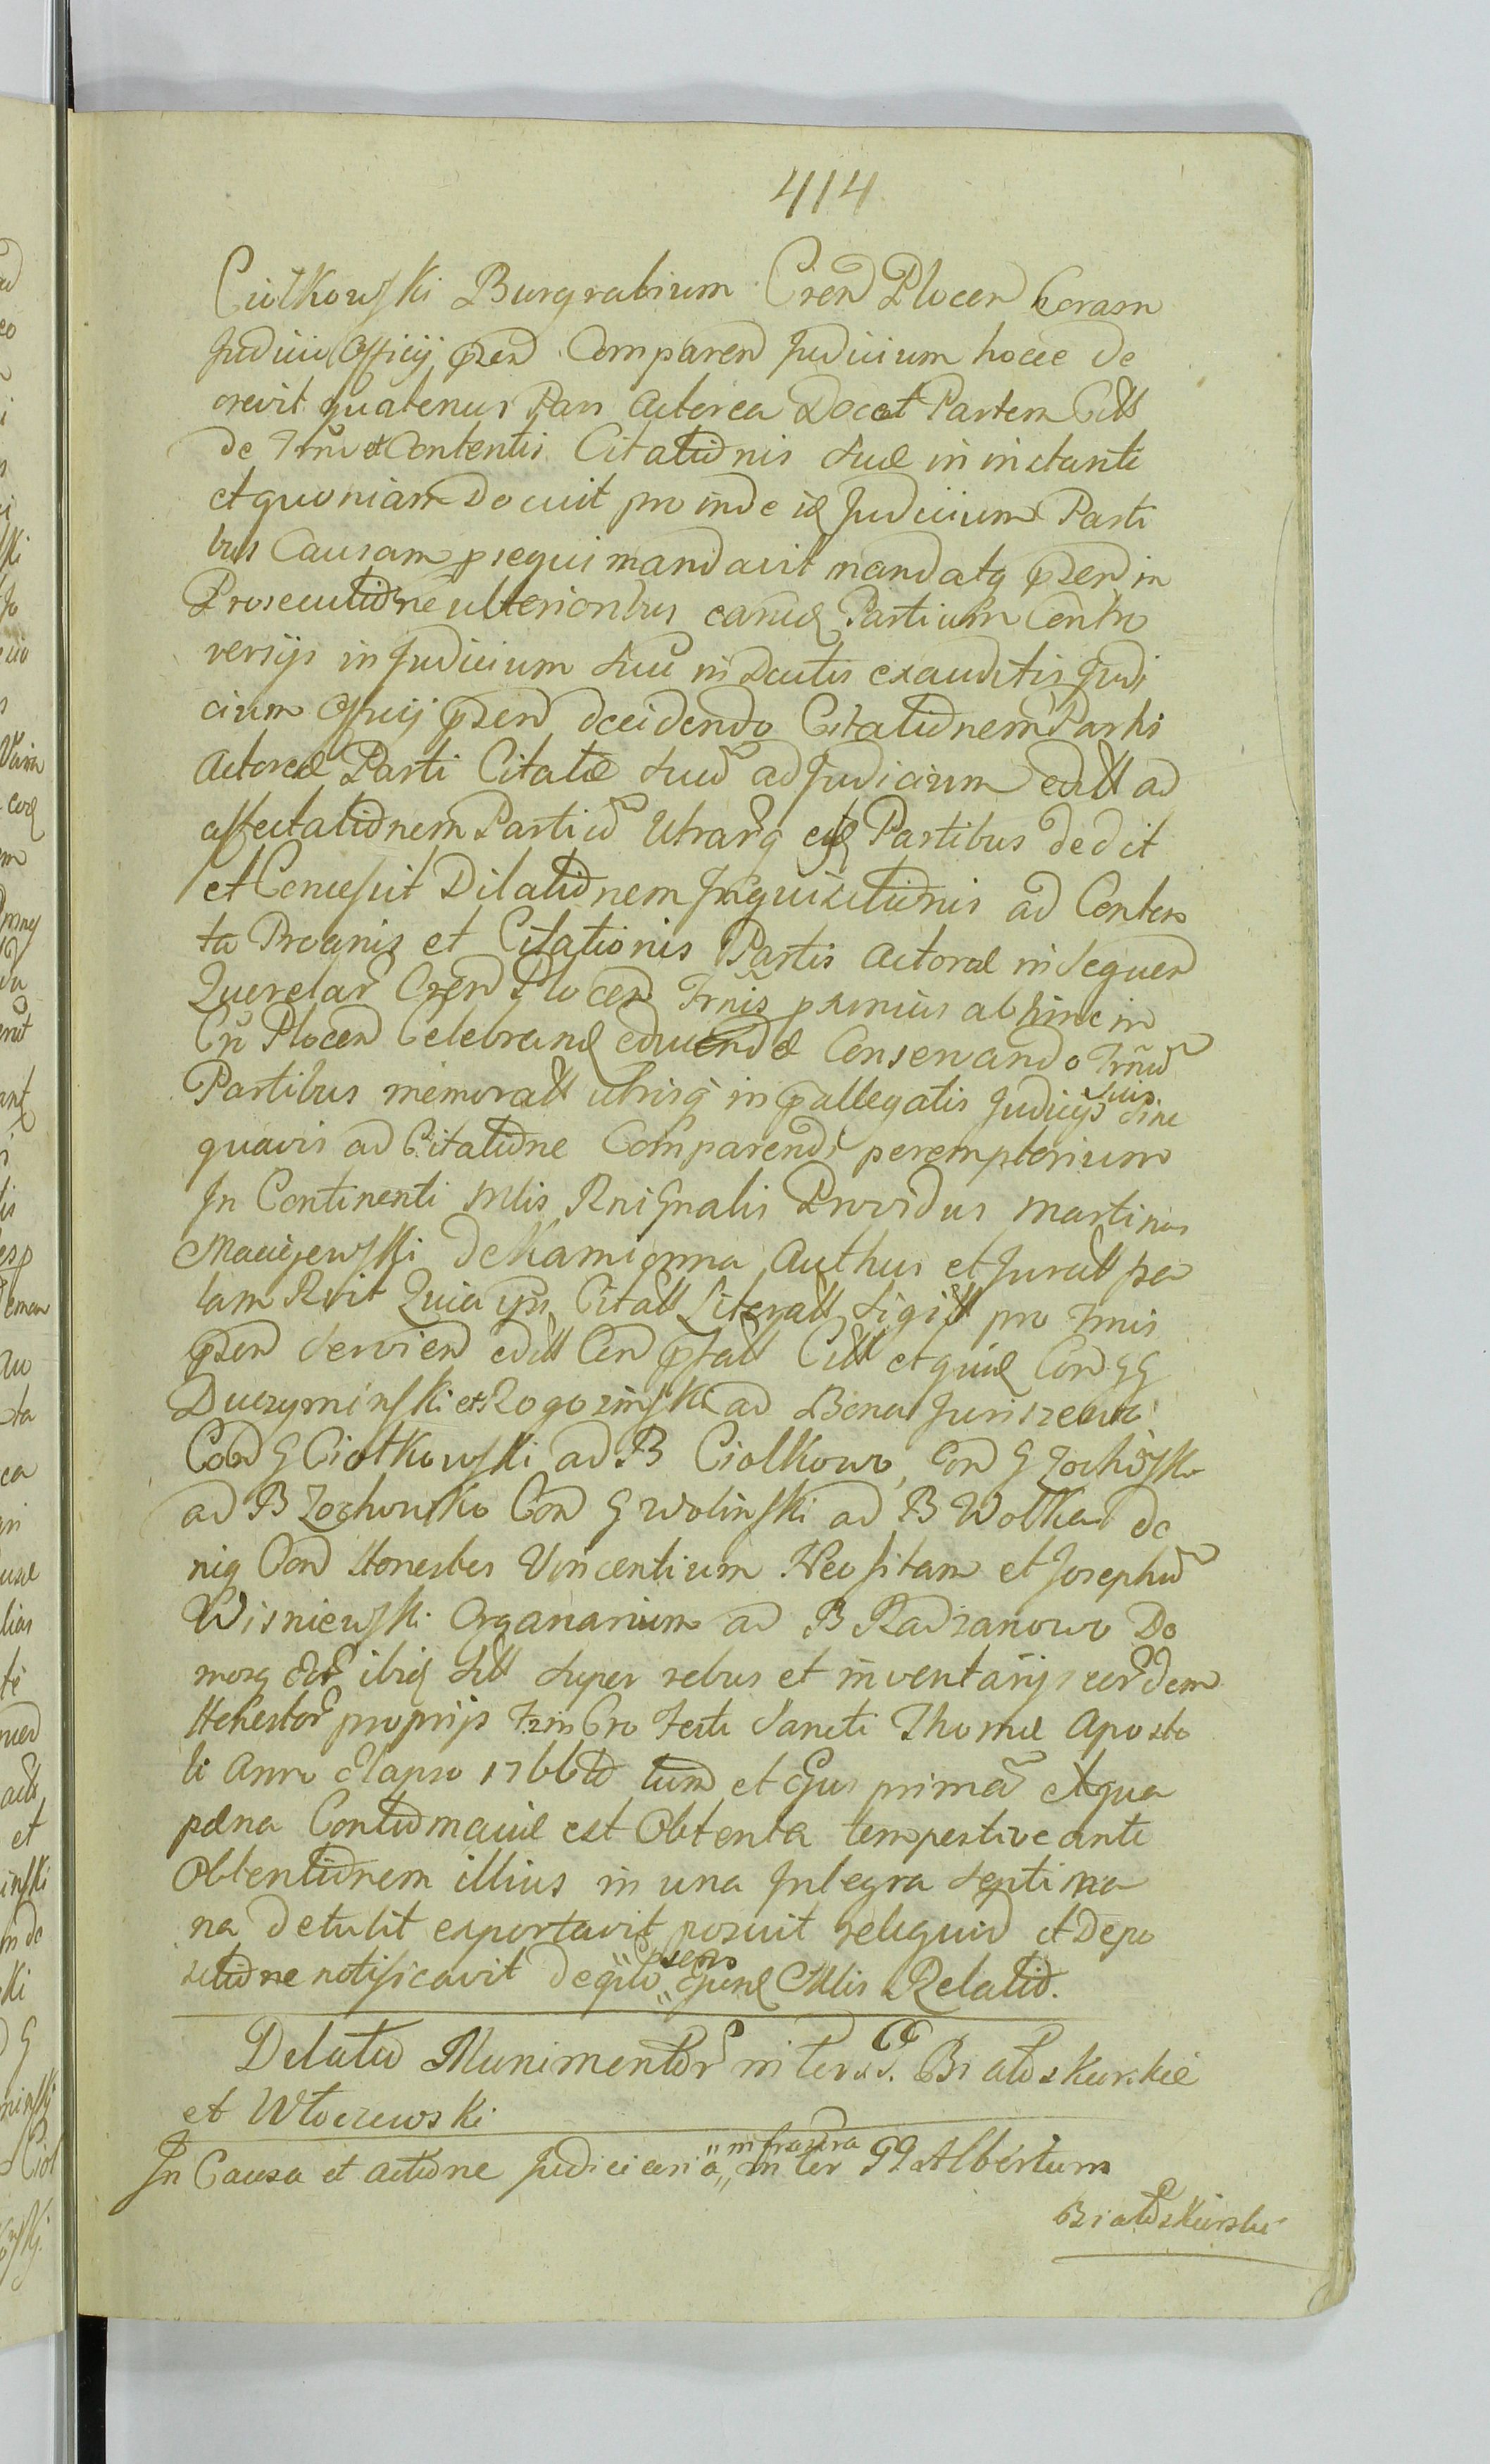 414
Ciołkowski Burgrabium Cren Plocen Coram
Judicio Officij pren Comparen Judicium hocce de
crevit quatenus Pars Actorea Doceat Partem Citt
de Trno et Contentis Citationis suæ in instanti
et quoniam Docuit pro inde id Judicium Parti
bus Causam psequi mandavit mandatq pren in
Prosecutione ulterioribus earund Partium Contro
versijs in Judicium suu inductis exauditis Judi
cium Officij pren decidendo Citationem Partis
Actoreæ Parti Citatæ suu ad Judicium editt ad
affectationem Partiu Utrarq eisd Partibus dedit
et Concessit Dilationem Inquisitionis ad Conten
ta Proqnis et Citationis Partis Actoreæ in sequen
Querelar Cren Plocen Trnis primius abhinc in
Cro Plocen Celebrand educendæ Conservando Trnu
Partibus memoratt utrisq in pallegatis Judicijs suis sine
quavis ad Citatione Comparendi peremptorium
In Continenti Mlis Rni Gnalis Providus Martinus
Maciejewski de Kamionna Authus et Juratt pa
lam Rvit Quia ipse Citatt Literatt Sigitt pro Trnis
pren Servien editt Con pfatt Citt et quid Con GG
Duczyminski et Rogozinski ad Bona Juriszewo
Con G Ciołkowski ad B Ciołkowo, Con G Zochowski
ad B Zochowko Con G Wolinski ad B Wolka de
niq Con Honestos Vincentium Neositam et Josephu
Wisniewski Organarium ad B Radzanowo Do
mosq eor ibiq Sitt super rebus et inventarijs eordem
Honestor proprijs Trin Cro festi Sancti Thomæ Aposto
li Anno Elapso 1766to tum et Ejus prima et qua
pæna Contumaciæ est Obtenta tempestive ante
Obtentionem illius in una Integra Septima
na detulit exportavit posuit reliquid et Depo
sitione notificavit de quo „prens„ Ejusd Mlis Relatio.
Delatio Munimentor inter GG Białoskurskie
et Włoczewski
In Causa et Actione Judiciaria „infrascra„ Inter GG Albertum
Białoskurski